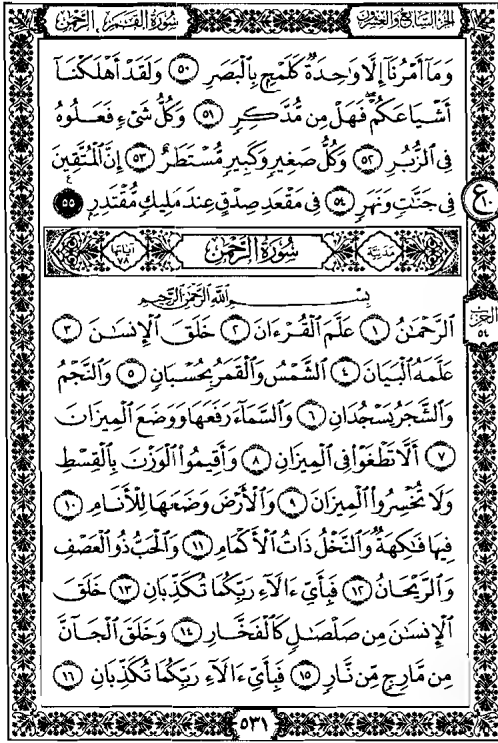 الجزء السابع والعشرون سورة القمر . الرحمن
وَمَآ أَمۡرُنَآ إِلَّا وَٰحِدَةٞ كَلَمۡحِۭ بِٱلۡبَصَرِ ٥٠ وَلَقَدۡ أَهۡلَكۡنَآ
أَشۡيَاعَكُمۡ فَهَلۡ مِن مُّدَّكِرٖ ٥١ وَكُلُّ شَيۡءٖ فَعَلُوهُ
فِي ٱلزُّبُرِ ٥٢ وَكُلُّ صَغِيرٖ وَكَبِيرٖ مُّسۡتَطَرٌ ٥٣ إِنَّ ٱلۡمُتَّقِينَ
فِي جَنَّٰتٖ وَنَهَرٖ ٥٤ فِي مَقۡعَدِ صِدۡقٍ عِندَ مَلِيكٖ مُّقۡتَدِرِۭ ٥٥
ع ١٠
مدنية سُورَةُ الرَّحْمٰن آياتها ٧٨
بِسۡمِ ٱللَّهِ ٱلرَّحۡمَٰنِ ٱلرَّحِيمِ
الحزب ٥٤
ٱلرَّحۡمَٰنُ ١ عَلَّمَ ٱلۡقُرۡءَانَ ٢ خَلَقَ ٱلۡإِنسَٰنَ ٣
عَلَّمَهُ ٱلۡبَيَانَ ٤ ٱلشَّمۡسُ وَٱلۡقَمَرُ بِحُسۡبَانٖ ٥ وَٱلنَّجۡمُ
وَٱلشَّجَرُ يَسۡجُدَانِ ٦ وَٱلسَّمَآءَ رَفَعَهَا وَوَضَعَ ٱلۡمِيزَانَ
٧ أَلَّا تَطۡغَوۡاْ فِي ٱلۡمِيزَانِ ٨ وَأَقِيمُواْ ٱلۡوَزۡنَ بِٱلۡقِسۡطِ
وَلَا تُخۡسِرُواْ ٱلۡمِيزَانَ ٩ وَٱلۡأَرۡضَ وَضَعَهَا لِلۡأَنَامِ ١٠
فِيهَا فَٰكِهَةٞ وَٱلنَّخۡلُ ذَاتُ ٱلۡأَكۡمَامِ ١١ وَٱلۡحَبُّ ذُو ٱلۡعَصۡفِ
وَٱلرَّيۡحَانُ ١٢ فَبِأَيِّ ءَالَآءِ رَبِّكُمَا تُكَذِّبَانِ ١٣ خَلَقَ
ٱلۡإِنسَٰنَ مِن صَلۡصَٰلٖ كَٱلۡفَخَّارِ ١٤ وَخَلَقَ ٱلۡجَآنَّ
مِن مَّارِجٖ مِّن نَّارٖ ١٥ فَبِأَيِّ ءَالَآءِ رَبِّكُمَا تُكَذِّبَانِ ١٦
٥٣١